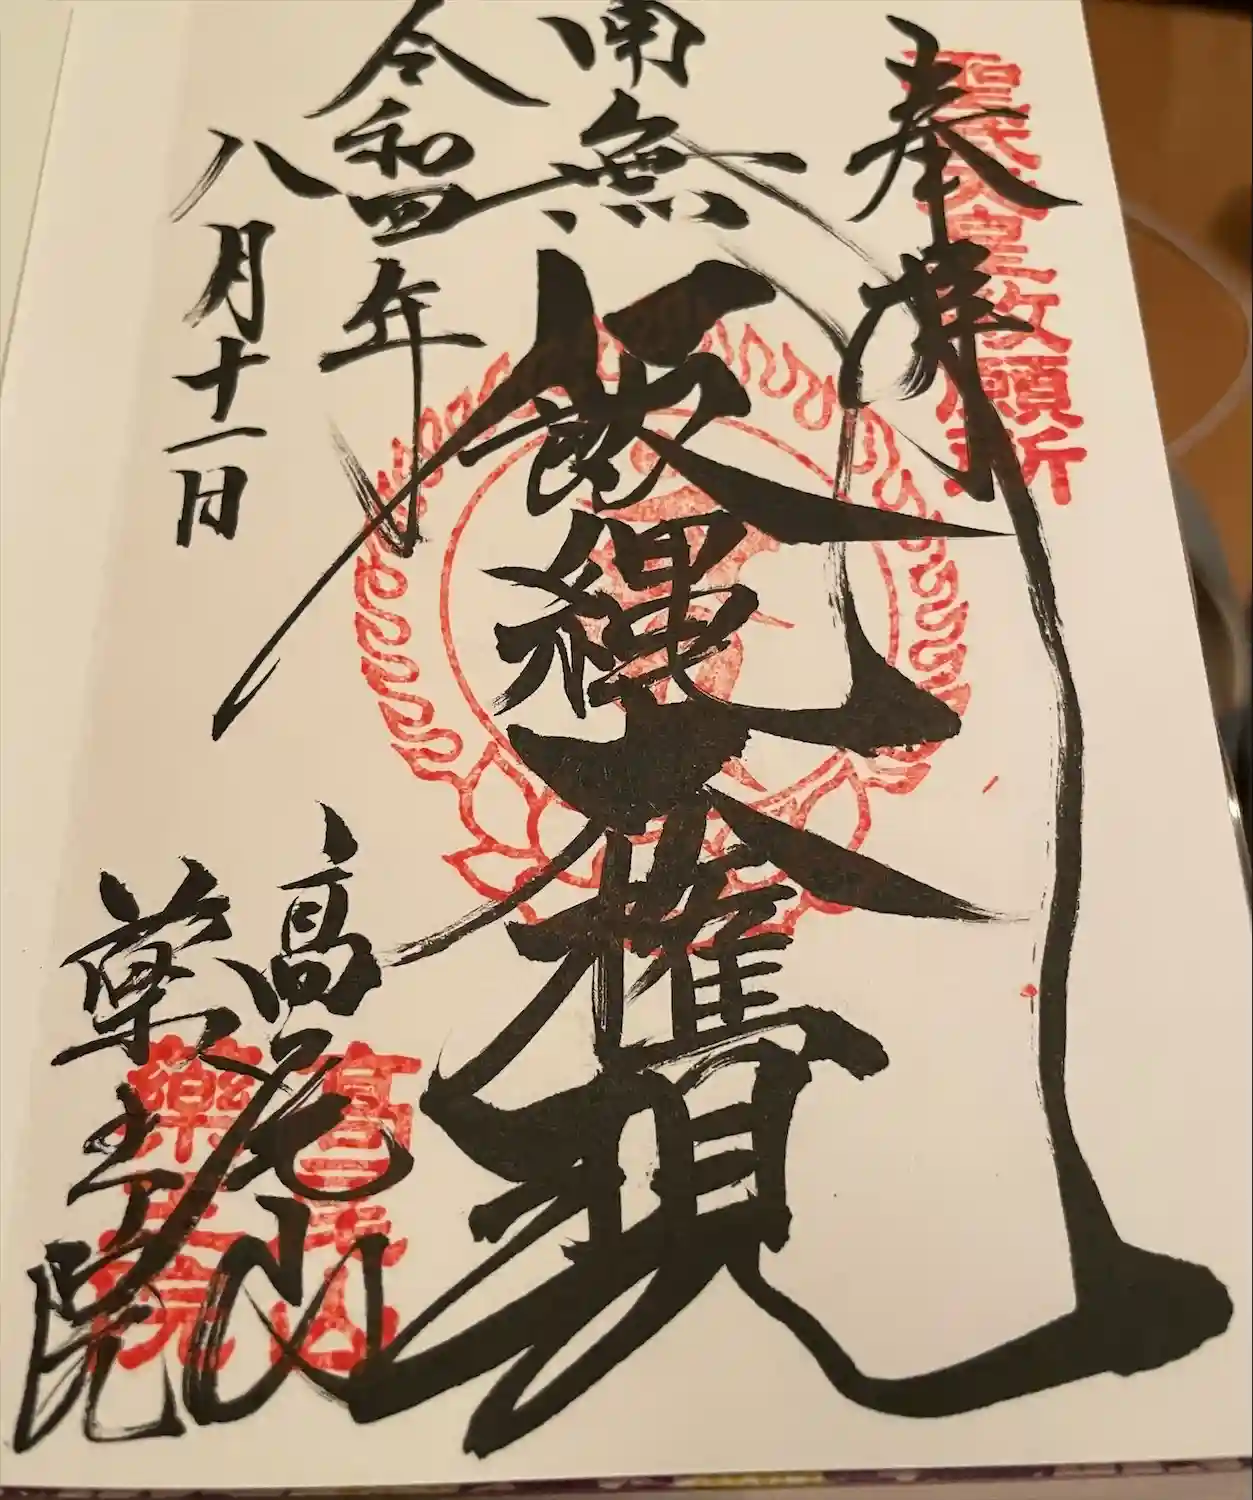 奉拝
聖武天皇敕願所
南無
飯縄大権現
令和四年
八月十一日
高尾山
薬王院
高尾山
薬王院